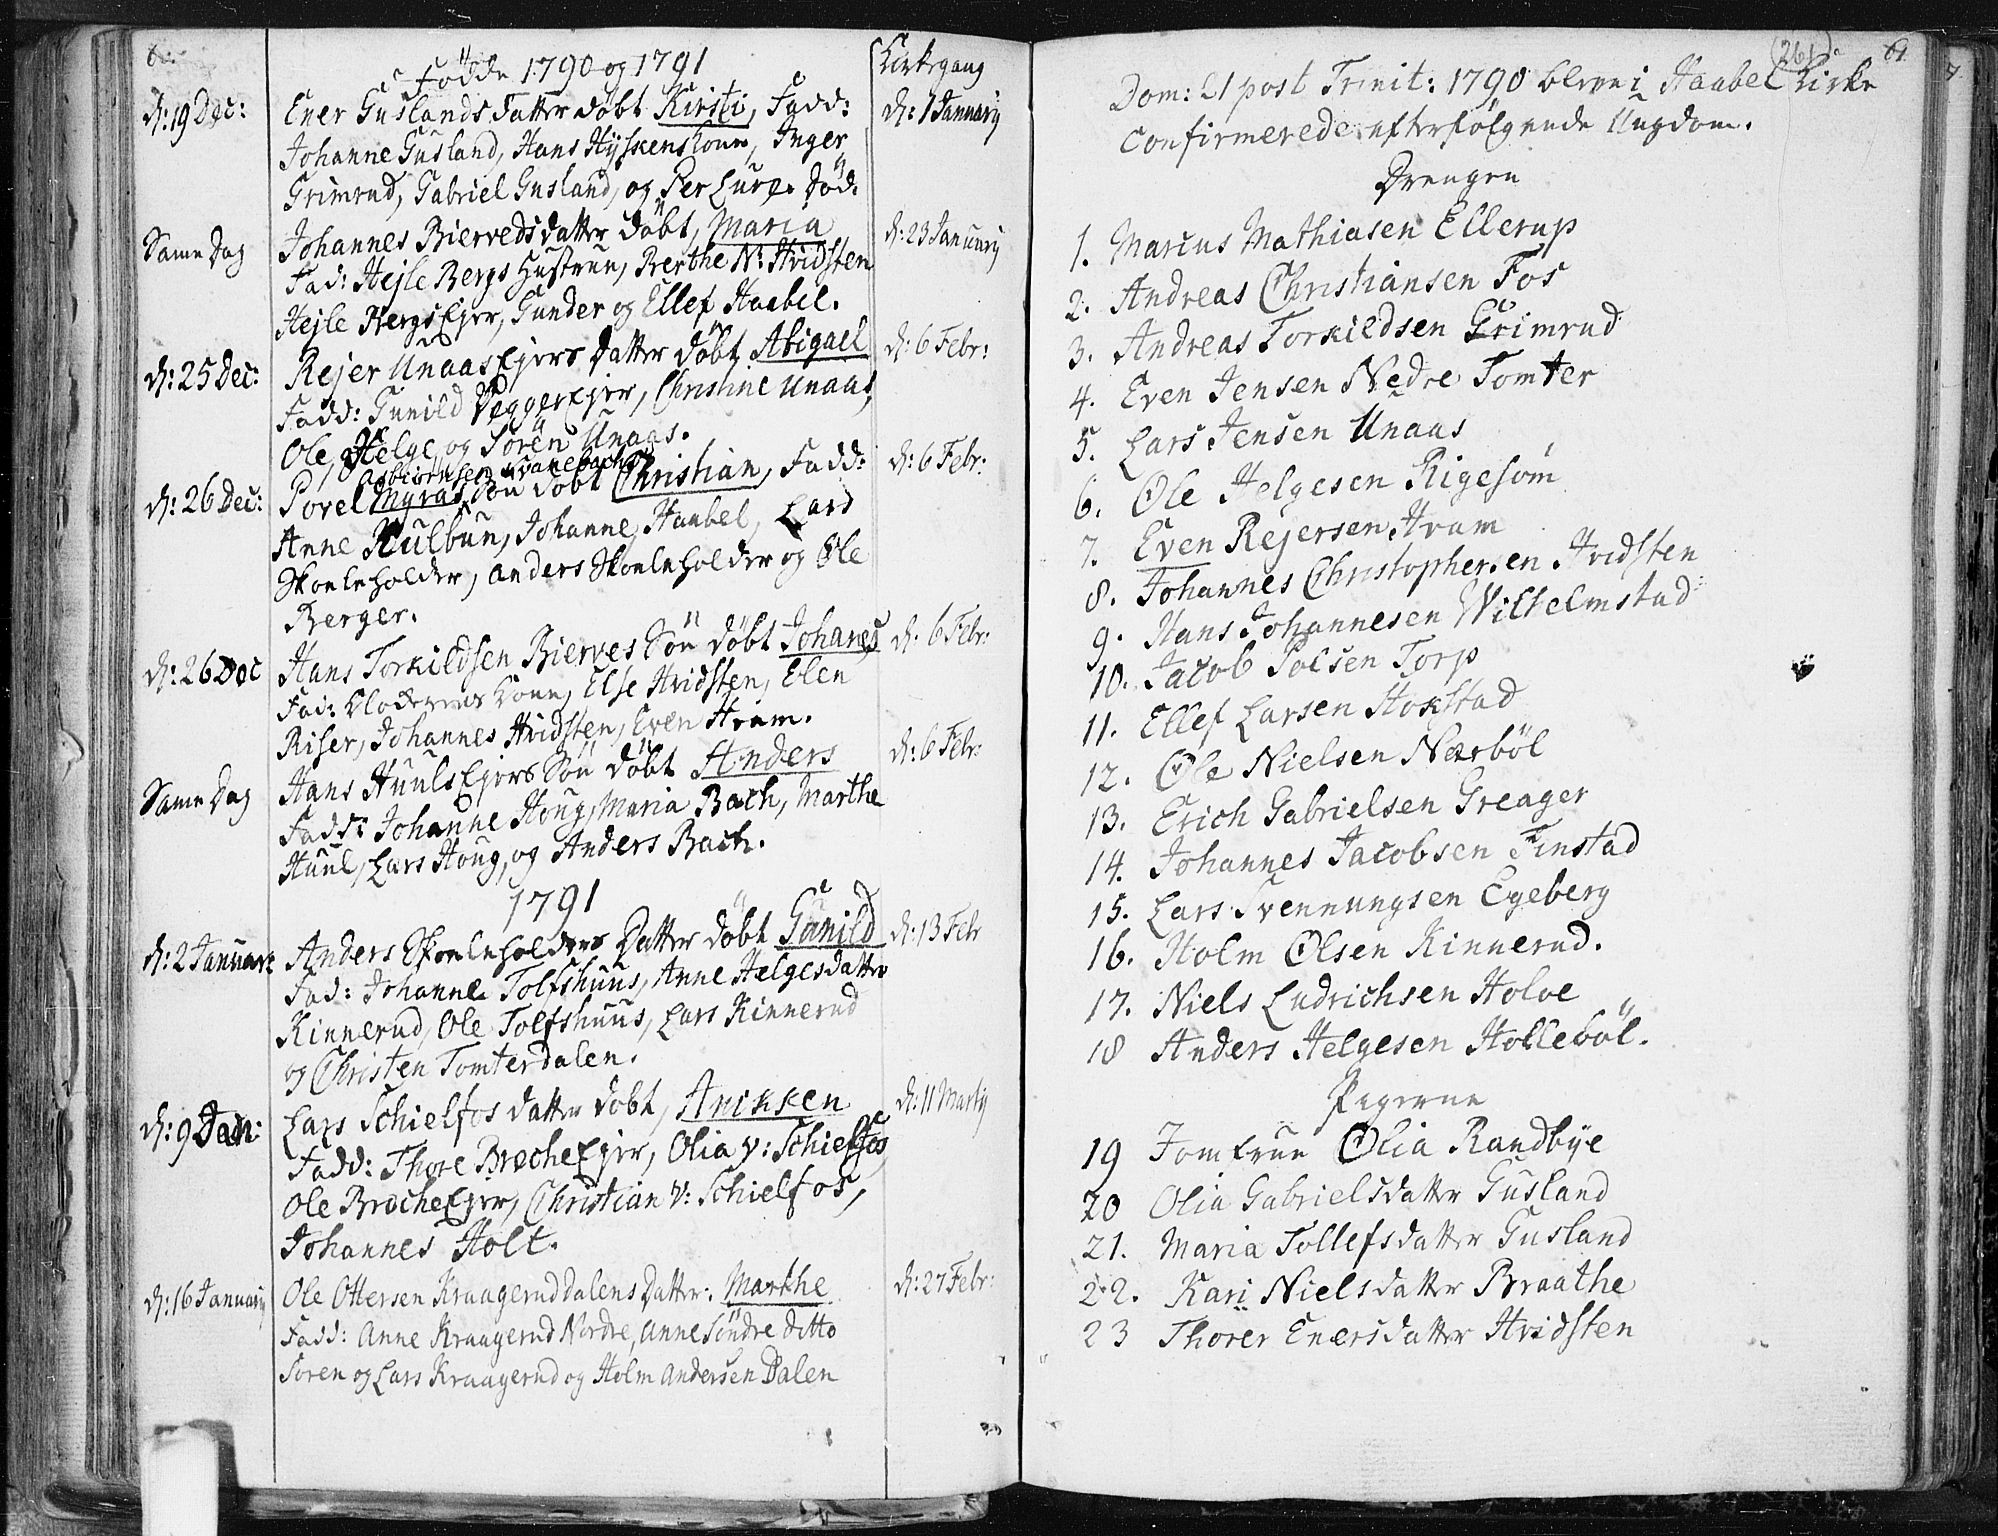 Fødde 1790 og 1791
Kirkegang
d: 19 Dec:
Ener Guslands Datter døbt Kirsti, Fadd:
d: 1 January
Johanne Gusland, Hans Hyskens Kone, Inger
Grimrud, Gabriel Gusland, og Per Lure. Død.
Same Dag
Johannes Biervedsdatter døbt, Maria
d: 23 January
Fad: Hejle Bergs Hustrue, Berthe N: Hvidsten
Hejle BergsEjer, Gunder og Ellef Haabel.
d: 25 Dec:
Rejer UnaasEjers Datter døbt Abigael
d: 6 Febr:
Fadd: Gunild VeggerEjer, Christine Unaas,
Ole, Helge, og Sören Unaas.
Asbiörnsen
d: 26 Dec:
Povel Myras Sön døbt Christian, Fadd:
d: 6 Febr:
Anne Kulbun, Johanne Haabel, Lars
Skoeleholder, Anders Skoeleholder og Ole
Berger.
d: 26 Dec
Hans Torkildsen Bierves Sön døbt Johanes
d: 6 Febr:
Fad: Klokerens Kone, Else Hvidsten, Elen
Riser, Johannes Hvidsten, Even Hvam.
Same Dag
Hans HuulsEjers Sön døbt Anders
d: 6 Febr:
Fadd: Johanne Houg, Maria Bach, Marthe
Huul, Lars Houg, og Anders Bach.
1791
d: 2 Januari
Anders Skoeleholders Datter døbt Gunild
d: 13 Febr
Fad: Johanne Tolfshuus, Anne Helgesdatter
Kinnerud, Ole Tolfshuus, Lars Kinnerud
og Christen Tomterdalen.
d: 9 Jan:
Lars Schielfos datter døbt, Anikken
d: 11 Marty
Fadd: Thore BrocheEjer, Olia v: Schielfos,
Ole BrocheEjer, Christian v: Schielfos,
Johannes Holt.
d: 16 January
Ole Ottersen Kraageruddalens Datter: Marthe
d: 27 Febr:
Fadd: Anne Kraagerud Nordre, Anne Söndre ditto
Soren og Lars Kraagerud og Holm Andersen Dalen
(261)
61.
Dom: 21 post Trinit: 1790 bleve i Haabel Kirke
Confirmerede efterfölgende Ungdom.
Drengen
1. Marcus Mathiasen Ellerup
2. Andreas Christiansen Fos
3. Andreas Torkildsen Grimrud
4. Even Jensen Nedre Tomter
5. Lars Jensen Unaas
6. Ole Helgesen Rigesom
7. Even Rejersen Hvam
8. Johannes Christophersen Hvidsten
9. Hans Johannesen Wilhelmstad
10. Jacob Polsen Torp
11. Ellef Larsen Hokstad
12. Ole Nielsen Nærböl
13. Erich Gabrielsen Greager
14. Johannes Jacobsen Finstad
15. Lars Svennungsen Egeberg
16. Holm Olsen Kinnerud.
17. Niels Ludrichsen Holve
18 Anders Helgesen Holleböl.
Pigerne
19 Jomfrue Olia Randbye
20 Olia Gabrielsdatter Gusland
21. Maria Tollefsdatter Gusland
22. Kari Nielsdatter Braathe
23 Thorer Enersdatter Hvidsten